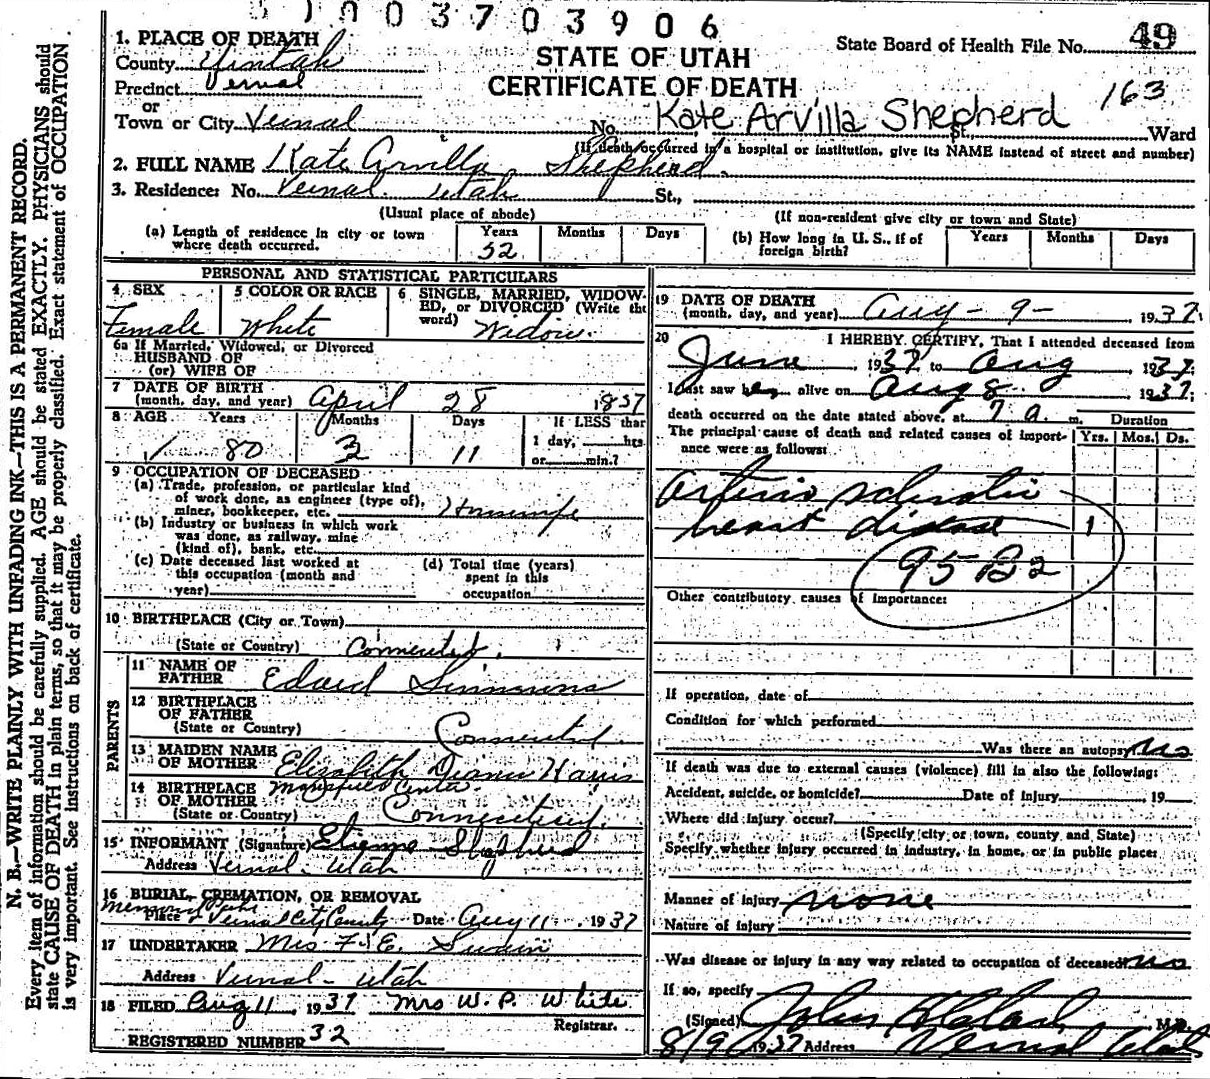 003703906
1. PLACE OF DEATH
County Uintah
Precinct Vernal
or
Town or City Vernal
STATE OF UTAH
CERTIFICATE OF DEATH
State Board of Health File No. 49
163
No. Kate Arvilla Shepherd St. Ward
(If death occurred in a hospital or institution, give its NAME instead of street and number)
2. FULL NAME Kate Arvilla Shepherd.
3. Residence: No. Vernal Utah St.,
(Usual place of abode) (If non-resident give city or town and State)
(a) Length of residence in city or town where death occurred. Years 52 Months Days
(b) How long in U. S., if of foreign birth? Years Months Days
PERSONAL AND STATISTICAL PARTICULARS
4 SEX Female
5 COLOR OR RACE White
6 SINGLE, MARRIED, WIDOWED, or DIVORCED (Write the word) Widow.
6a If Married, Widowed, or Divorced
HUSBAND OF
(or) WIFE OF
7 DATE OF BIRTH
(month, day, and year) April 28 1857
8 AGE Years Months Days If LESS than
80 3 11 1 day, hrs.
or min.?
9 OCCUPATION OF DECEASED
(a) Trade, profession, or particular kind
of work done, as engineer (type of),
miner, bookkeeper, etc. Housewife
(b) Industry or business in which work
was done, as railway, mine
(kind of), bank, etc.
(c) Date deceased last worked at
this occupation (month and
year)
(d) Total time (years)
spent in this
occupation
10 BIRTHPLACE (City or Town)
(State or Country) Connecticut.
PARENTS
11 NAME OF
FATHER Edward Simmons
12 BIRTHPLACE
OF FATHER
(State or Country) Connecticut.
13 MAIDEN NAME
OF MOTHER Elizabeth Harris
14 BIRTHPLACE Mansfield Center.
OF MOTHER
(State or Country) Connecticut.
15 INFORMANT (Signature) Shepherd
Address Vernal - Utah
16 BURIAL, CREMATION, OR REMOVAL
Memorial Park
Place Vernal City County Date Aug 11 1937
17 UNDERTAKER Mrs F. E. Swain
Address Vernal - Utah
18 FILED Aug 11, 1937 Mrs W. P. White
Registrar.
REGISTERED NUMBER 32
19 DATE OF DEATH
(month, day, and year) Aug - 9 - 1937
20 I HEREBY CERTIFY, That I attended deceased from
June, 1937 to Aug, 1937;
I last saw her alive on Aug 8 1937;
death occurred on the date stated above, at 7 a. m. Duration
The principal cause of death and related causes of importance were as follows: Yrs. Mos. Ds.
Arterio sclerotic
heart disease 1
95-B2
Other contributory causes of importance:
If operation, date of
Condition for which performed
Was there an autopsy no
If death was due to external causes (violence) fill in also the following:
Accident, suicide, or homicide? Date of injury 19
Where did injury occur?
(Specify city or town, county and State)
Specify whether injury occurred in industry, in home, or in public place:
Manner of injury none
Nature of injury
Was disease or injury in any way related to occupation of deceased? no
If so, specify
(Signed) John M.D.
8/9 1937 Address Vernal Utah
N. B.—WRITE PLAINLY WITH UNFADING INK—THIS IS A PERMANENT RECORD.
Every item of information should be carefully supplied. AGE should be stated EXACTLY. PHYSICIANS should
state CAUSE OF DEATH in plain terms, so that it may be properly classified. Exact statement of OCCUPATION
is very important. See instructions on back of certificate.